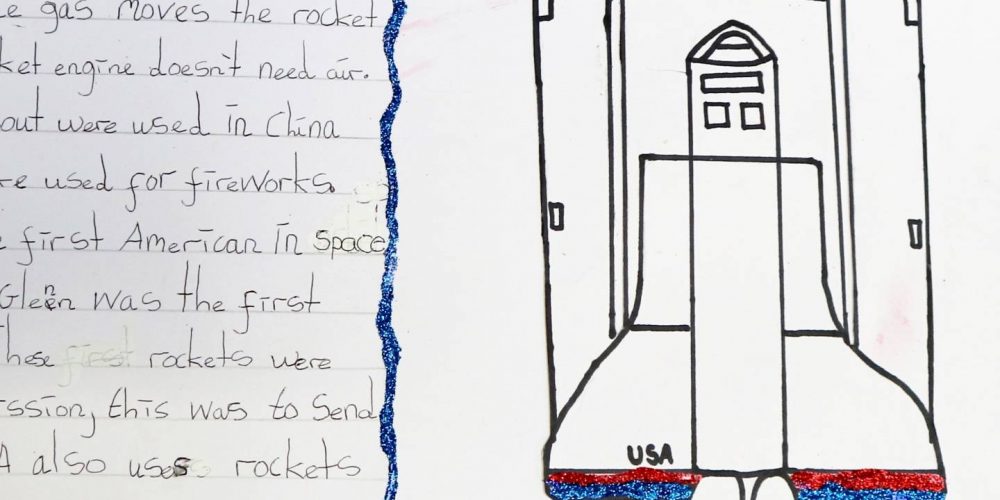 e gas moves the rocket
ket engine doesn't need air.
out were used in China
re used for fireworks.
e first American in space
Gleńn was the first
hese first rockets were
ission, this was to Send
A also uses rockets
USA